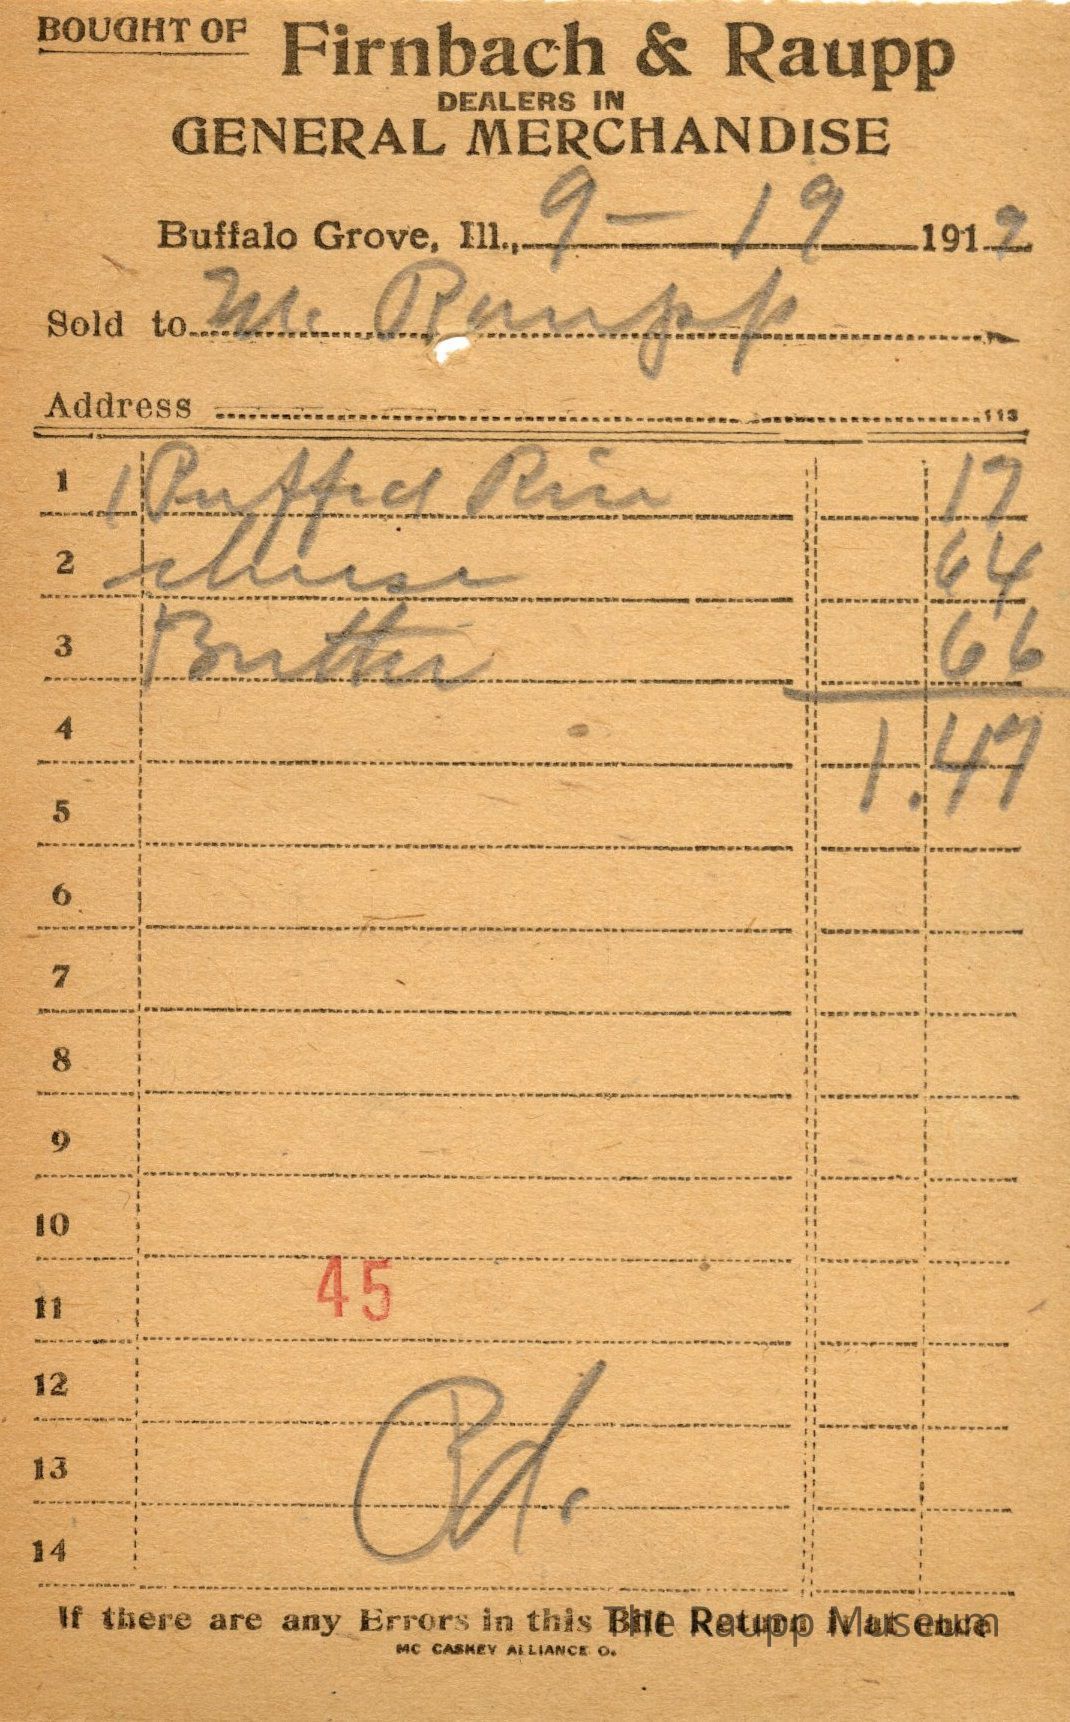 BOUGHT OF Firnbach & Raupp
DEALERS IN
GENERAL MERCHANDISE
Buffalo Grove, Ill., 9-19 1919
Sold to M. Raupp
Address 113
1 1 Puffed Rice 17
2 cheese 64
3 Butter 66
4 1.47
5
6
7
8
9
10
11 45
12
13 Pd.
14
If there are any Errors in this Bill Return it at once
The Raupp Museum
MC CASKEY ALLIANCE O.